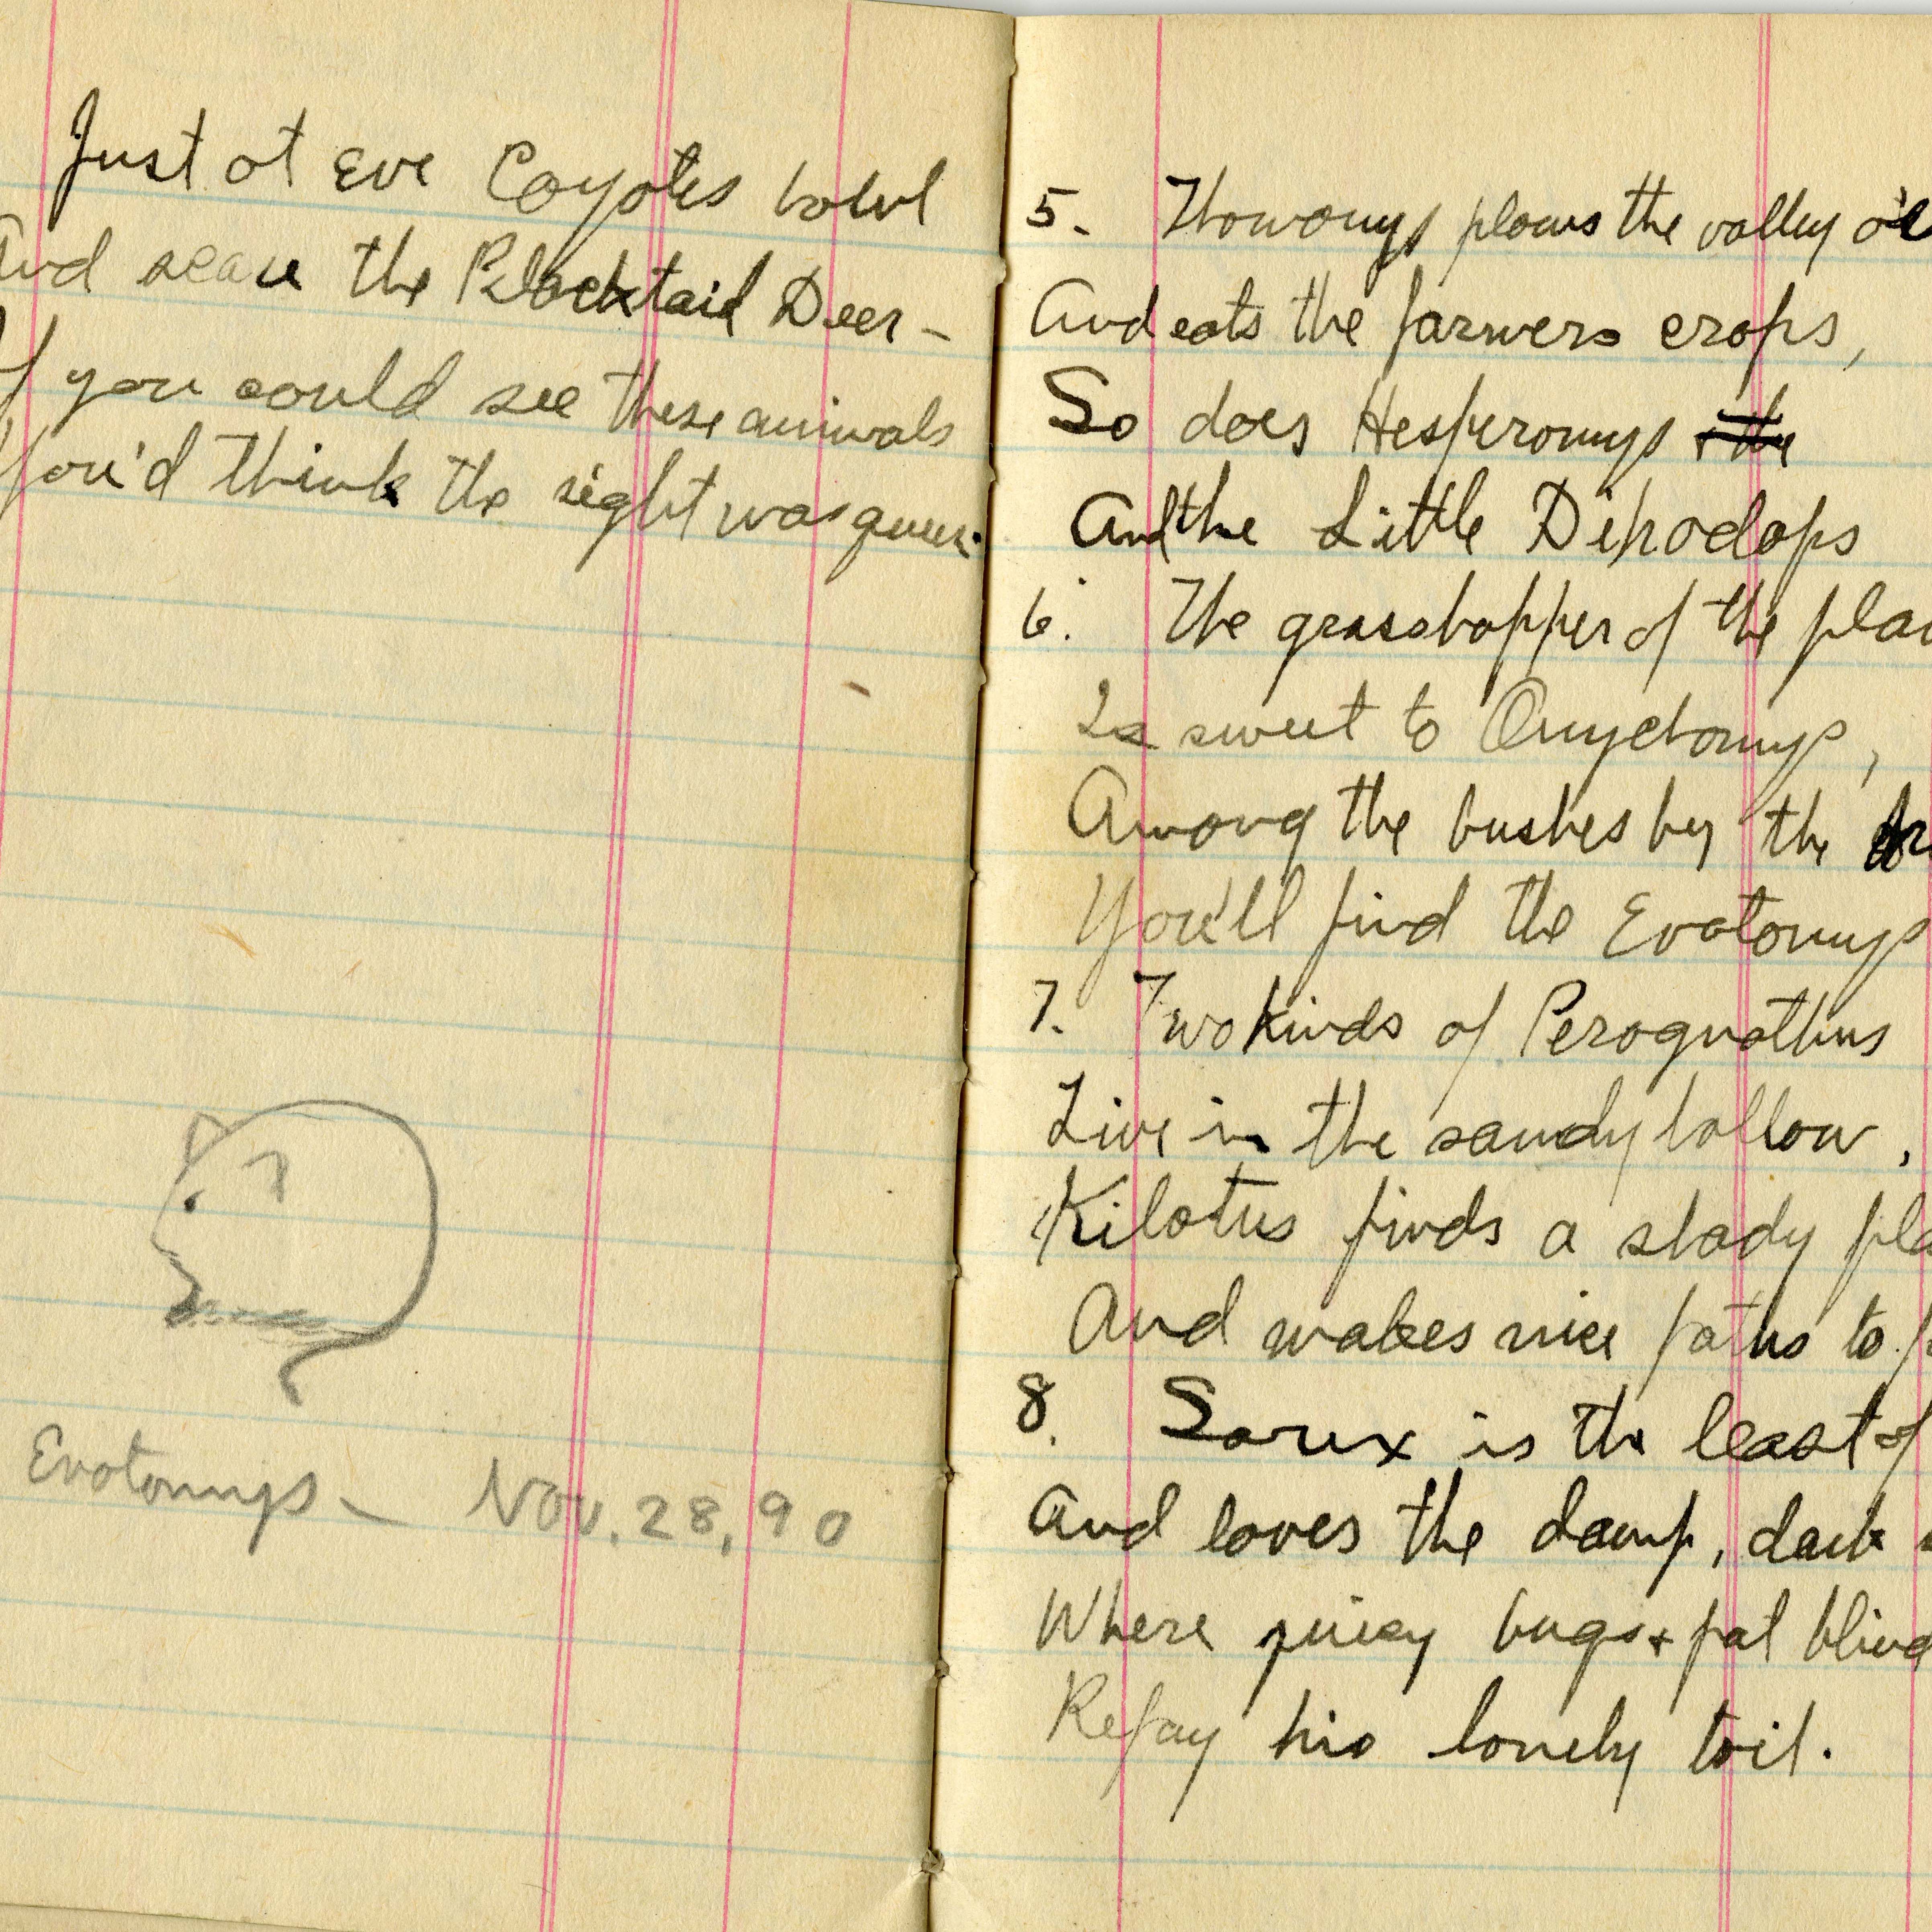 Just at Eve Coyotes howl
And scare the Blacktail Deer –
If you could see these animals
You'd think the sight was queer.
Evotomys – Nov. 28, 90
5. Thomomys plows the valley
And eats the farmers crops,
So does Hesperomys
And the Little Dipodops
6. The grasshopper of the
Is sweet to Onychomys,
Among the bushes by the
You'll find the Evotomys
7. Two kinds of Perognathus
Live in the sandy hollow,
Kilotus finds a shady
And makes nice paths to
8. Sorex is the least of
And loves the damp, dark
Where juicy bugs & fat blind
Repay his lonely toil.